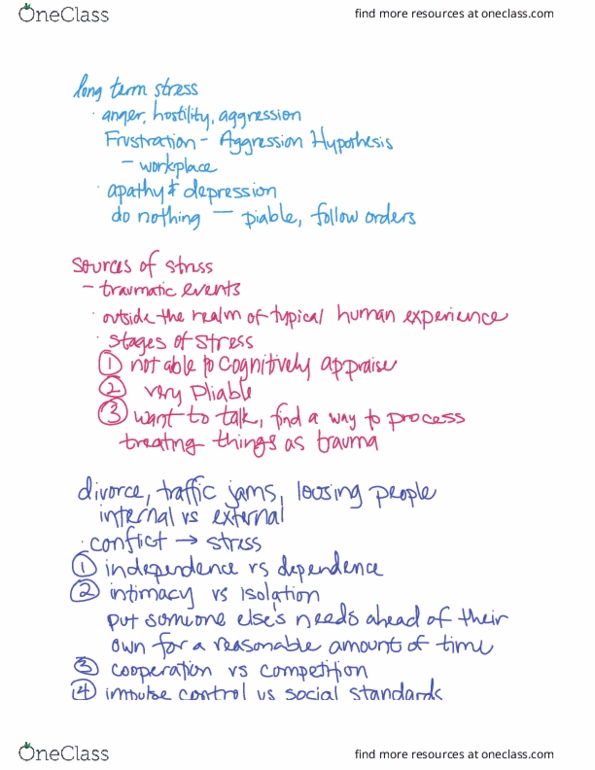 OneClass
find more resources at oneclass.com
long term stress
· anger, hostility, aggression
Frustration - Aggression Hypothesis
- workplace
· apathy & depression
do nothing — pliable, follow orders
sources of stress
- traumatic events
· outside the realm of typical human experience
· stages of stress
① not able to cognitively appraise
② very pliable
③ want to talk, find a way to process
treating things as trauma
divorce, traffic jams, lousing people
internal vs external
· conflict → stress
① independence vs dependence
② intimacy vs Isolation
put someone else's needs ahead of their
own for a reasonable amount of time
③ cooperation vs competition
④ impulse control vs social standards
OneClass
find more resources at oneclass.com